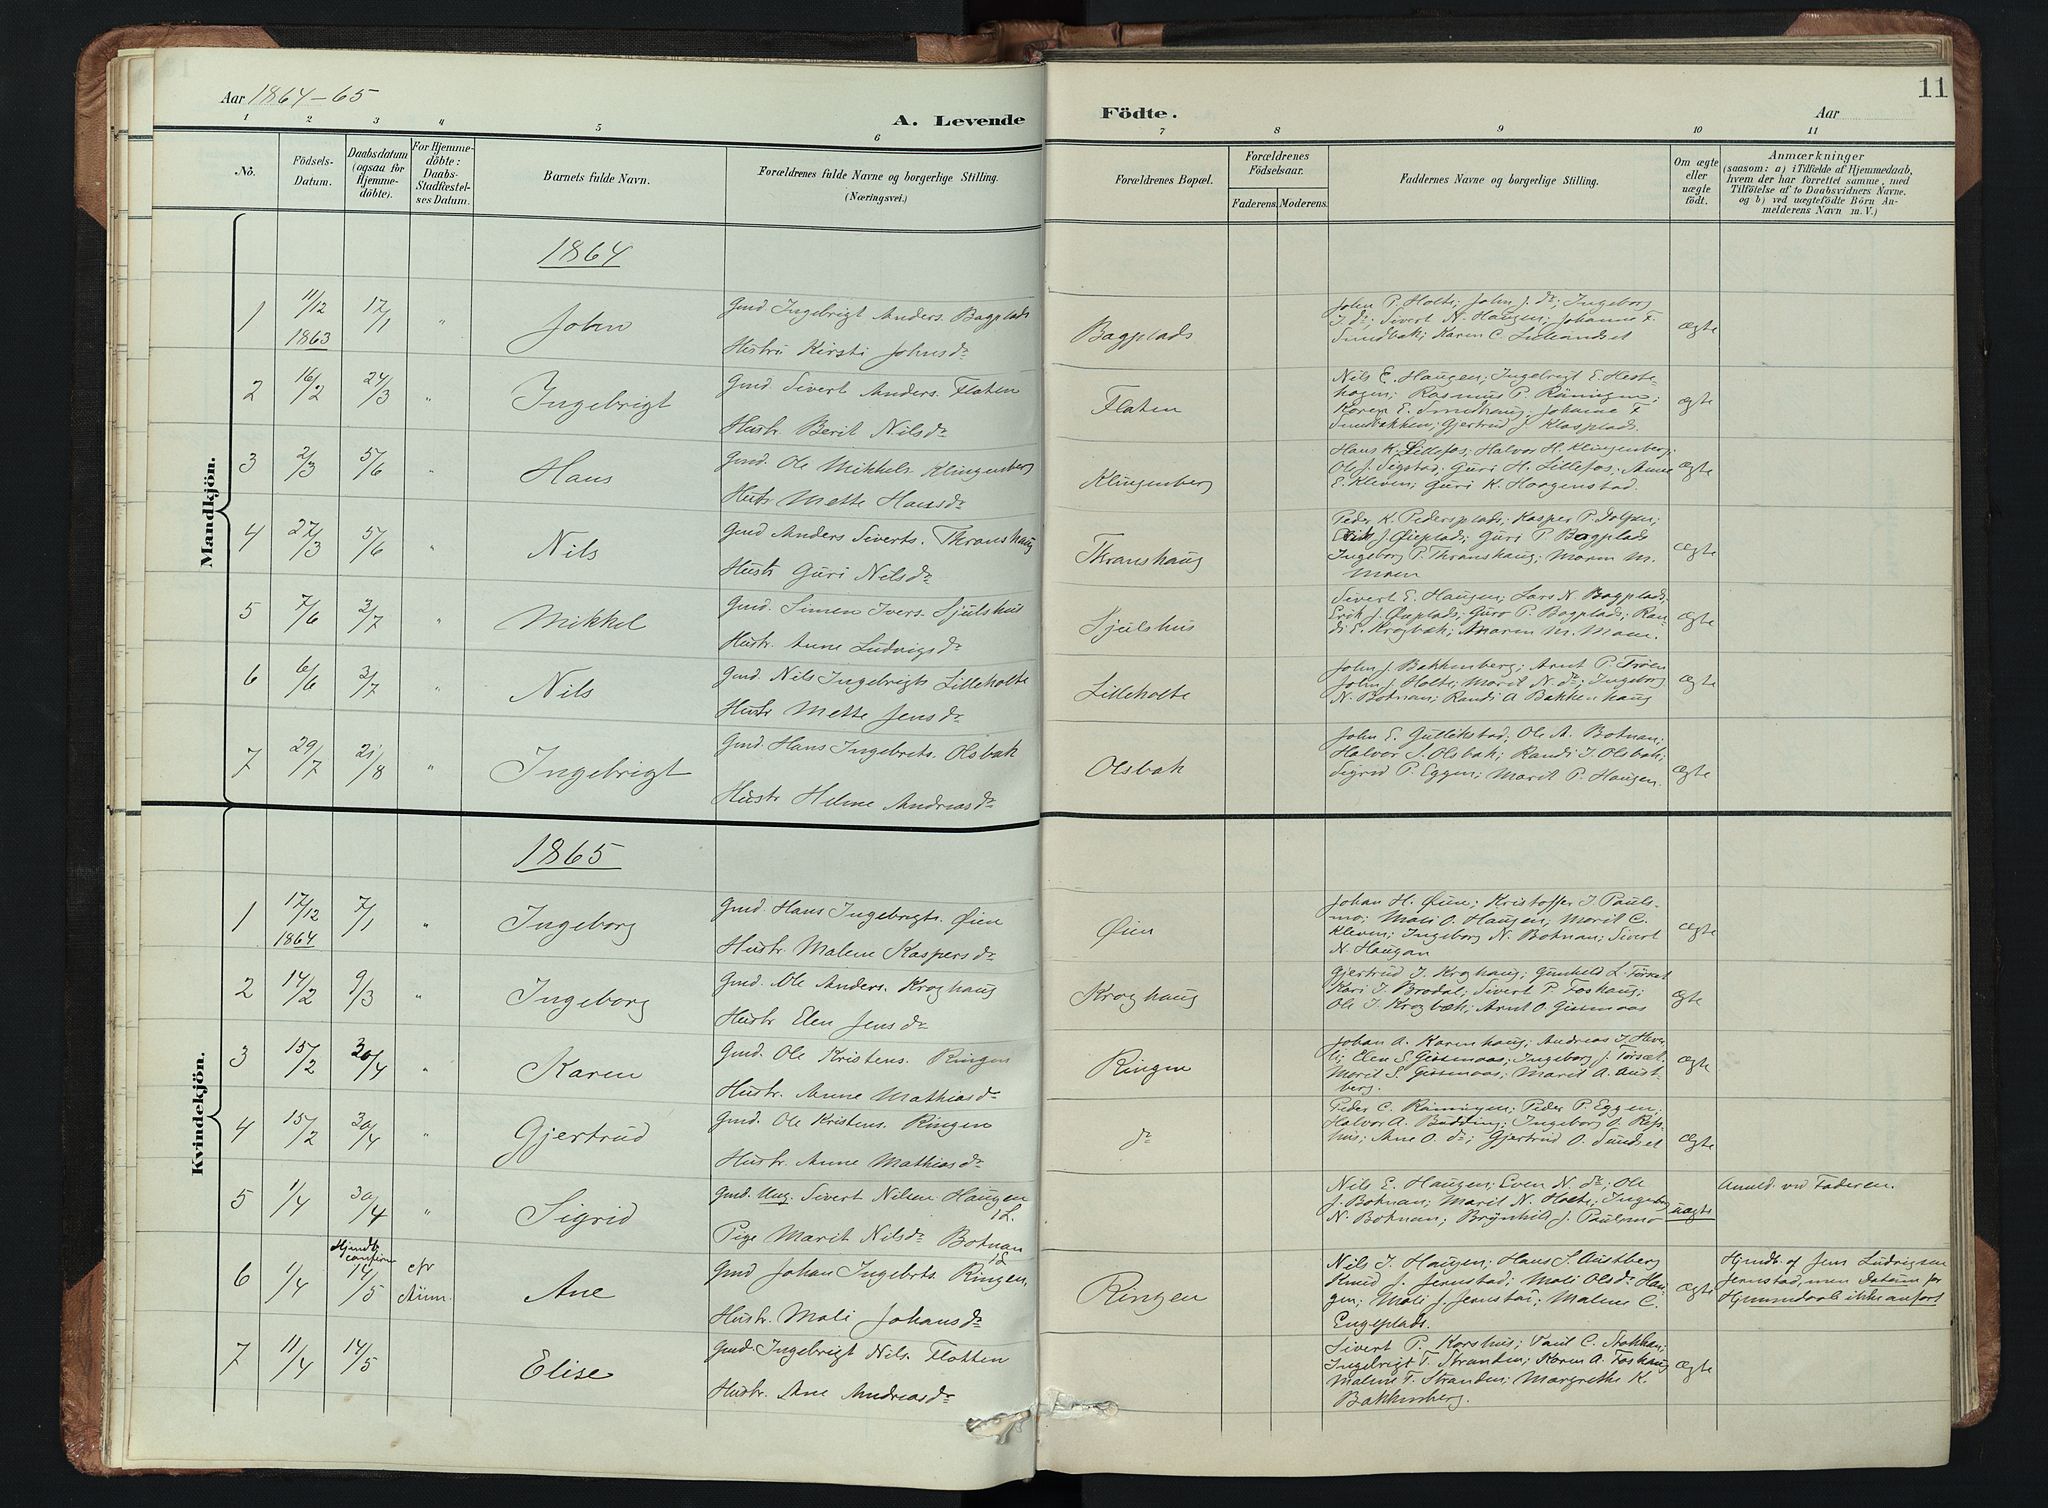 Aar 1864-65
A. Levende
Födte.
Aar
11
1 2 3 4 5 6 7 8 9 10 11
No.
Födsels-Datum.
Daabsdatum (ogsaa for Hjemme-döbte).
For Hjemme-döbte: Daabs-Stadfæstel-ses Datum.
Barnets fulde Navn.
Forældrenes fulde Navne og borgerlige Stilling.
(Næringsvei.)
Forældrenes Bopæl.
Forældrenes Födselsaar.
Faderens.
Moderens.
Faddernes Navne og borgerlige Stilling.
Om ægte eller uægte födt.
Anmærkninger
(saasom: a) i Tilfælde af Hjemmedaab,
hvem der har forrettet samme, med
Tilföielse af to Daabsvidners Navne.
og b) ved uægtefödte Börn An-
melderens Navn m. V.)
Mandkjön.
1864
1 11/12 1863 17/1 " John
Gmd. Ingebrigt Anders. Bagplads
Hustru Kirsti Johnsdr
Bagplads
John P. Holte; John J. dr; Ingeborg
J. dr; Sivert N. Haugen; Johanne F.
Sundbak; Karen C. Lilleandset
ægte
2 16/2 24/3 " Ingebrigt
Gmd. Sivert Anders. Flaten
Hustr. Berit Nilsdr
Flaten
Nils E. Haugen; Ingebrigt E. Heste-
hagen; Rasmus P. Röningen;
Karen E. Sundhaug; Johanne F.
Sundbakken; Gjertrud J. Klasplads.
ægte
3 2/3 5/6 " Hans
Gmd. Ole Mikkels. Klingenberg
Hustr Mette Hansdr
Klingenberg
Hans K. Lillefos; Halvor H. Klingenberg;
Ole J. Sigstad; Guri H. Lillefos; Anne
E. Kleven; Guri K. Haagenstad.
Ægte
4 27/3 5/6 " Nils
Gmd Anders Siverts. Thranshaug
Hustr Guri Nilsdr
Thranshaug
Peder K. Pedersplads; Kasper P.
Erik J. Øieplads; Guri P. Bagplads
Ingeborg P. Thranshaug; Maren M.
Moen
Ægte
5 7/6 3/7 " Mikkel
Gmd. Simen Ivers. Sjulshus
Hustr. Anne Ludvigsdr
Sjulshus
Sivert E. Haugen; Lars N. Bagplads;
Erik J. Øieplads; Guro P. Bagplads; Ran-
di E. Krogbak; Maren M. Moen.
Ægte
6 6/6 3/7 " Nils
Gmd. Nils Ingebrigts Lilleholte
Hustr Mette Jensdr
Lilleholte
John J. Bakkenberg; Arnt P. Trøen
John J. Holte; Marit N. dr; Ingeborg
N. Botnan; Randi A Bakkenhaug
Ægte
7 29/7 21/8 " Ingebrigt
Gmd. Hans Ingebrets. Olsbak
Hustr Helene Andreasdr
Olsbak
John E. Gullikstad; Ole A. Botnan;
Halvor J. Olsbak; Randi J. Olsbak;
Sigrid P. Eggen; Marit P. Haugen.
Ægte
Kvindekjön.
1865
1 17/12 1864 7/1 " Ingeborg
Gmd. Hans Ingebrigts. Øien
Hustr. Malene Kaspersdr
Øien
Johan H. Øien; Kristoffer J Pauls-
mo; Mali O. Haugen; Marit C.
Kleven; Ingeborg N. Botnan; Sivert
N. Haugan
Ægte
2 14/2 9/3 " Ingeborg
Gmd. Ole Anders. Kroghaug
Hustr Elen Jensdr
Kroghaug
Gjertrud J. Kroghaug; Gunhild L. Tørset
Kari J Brodal; Sivert P Foshaug;
Ole J. Krogbæk; Arnt O. Gissmaas
Ægte
3 15/2 30/4 " Karen
Gmd. Ole Kristens. Ringen
Hustr. Anne Mathiasdr
Ringen
Johan A. Karenhaug; Andreas J. Hever-
li; Elen S. Gissmaas; Ingeborg J. Tørset;
Marit S. Gissmaas; Marit A. Aust-
berg.
Ægte
4 15/2 30/4 " Gjertrud
Gmd. Ole Kristens. Ringen
Hustr. Anne Mathiasdr
dr
Peder C. Röningen; Peder P. Eggen;
Halvor A. Budding; Ingeborg O. Rös-
hus; Ane O. dr; Gjertrud O. Sundset
Ægte
5 1/4 30/4 " Sigrid
Gmd. Ung. Sivert Nilsen Haugen 1L.
Pige Marit Nilsdr Botnan 1L
Nils E. Haugen; Even N. dr; Ole
J. Botnan; Marit N. Holte; Ingeborg
N. Botnan; Brynhild J. Paulsmo
uægte
Anmld. ved Faderen.
6 1/4 Hjmdb. confirm 14/5 Ane
Gmd Johan Ingebrts. Ringen,
Hustr. Mali Johansdr
Ringen
Nils J. Haugen; Hans J. Austberg
Knud J. Jernstad; Mali Olsdr Hau-
gen; Mali J. Jernstad; Malene C.
Engeplads.
Ægte
Hjmdb. af Jens Ludvigsen
Jernstad, men Datum for
Hjemmedaab ikke anfört
7 11/4 14/5 Elise
Gmd. Ingebrigt Nils. Flotten
Hustr. Ane Andreasdr
Sivert P. Korshus; Paul C. Stokhan;
Ingebrigt T. Stranden; Karen A. Foshaug
Malene T. Stranden; Margrethe K.
Bakkenberg.
Ægte